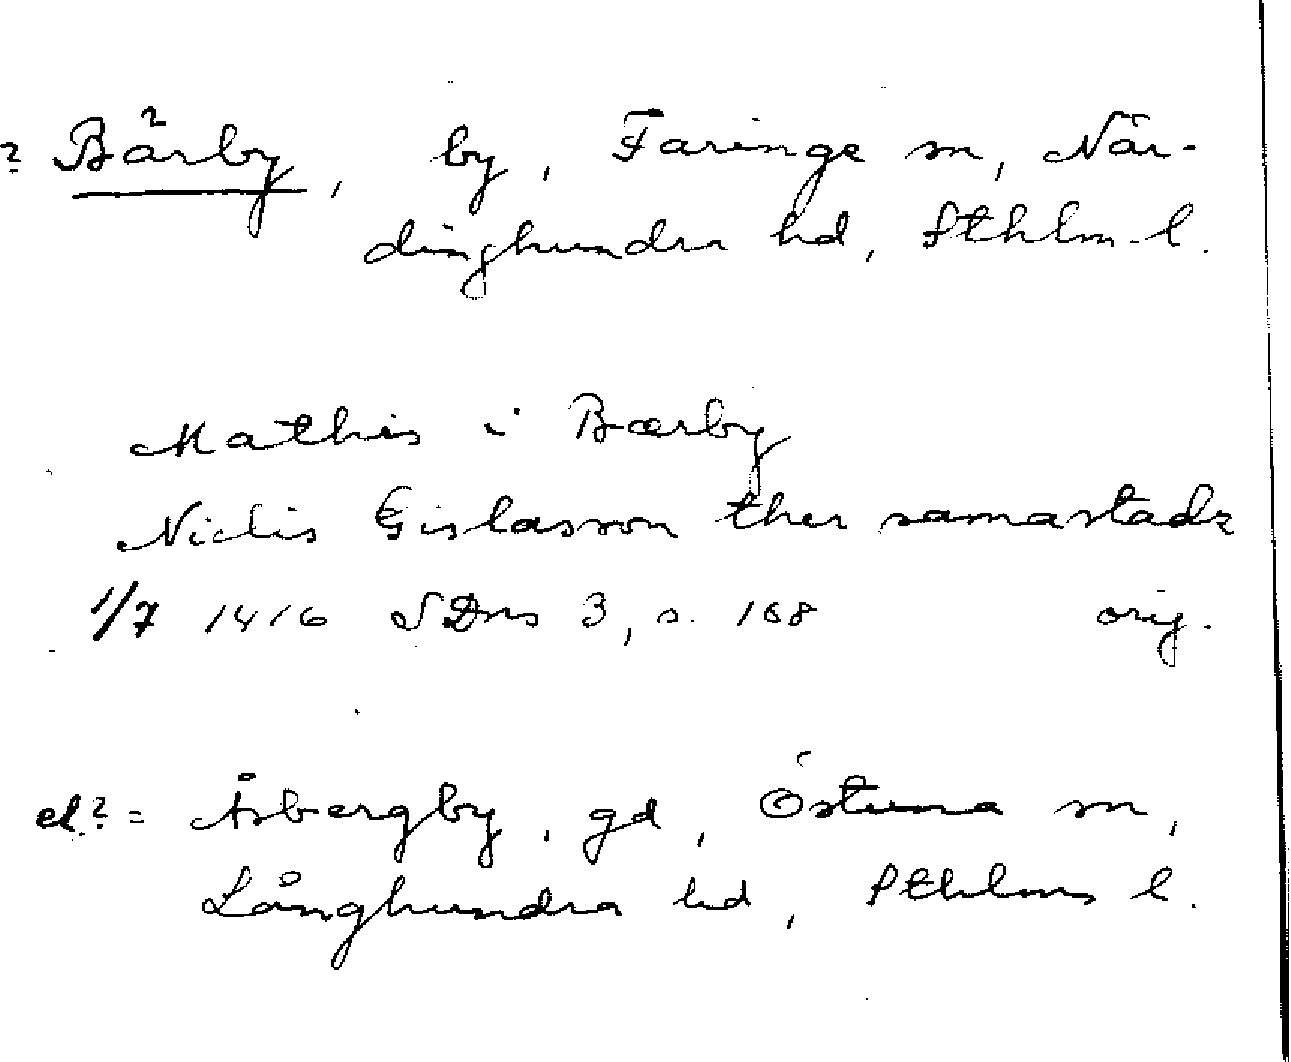 ? Bärby, by, Faringe sn, När-
dinghundra hd, Sthlm l.
Mathis i Bærby
Niclis Gislasson ther samastadz
1/7 1416 SDns 3, s. 168 orig.
el.? = Åsbergby, gd, Östuna sn,
Långhundra hd, Sthlms l.